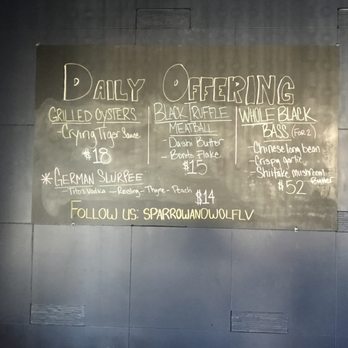 DAILY OFFERING
GRILLED OYSTERS
- Crying Tiger Sauce
$18
BLACK TRUFFLE
MEATBALL
- Dashi Butter
- Bonito Flake
$15
WHOLE BLACK
BASS (FOR 2)
- Chinese long bean
- Crispy garlic
- Shiitake mushroom
Butter
$52
* GERMAN SLURPEE
- Tito's Vodka - Riesling - Thyme - Peach
$14
FOLLOW US: SPARROWANDWOLFLV